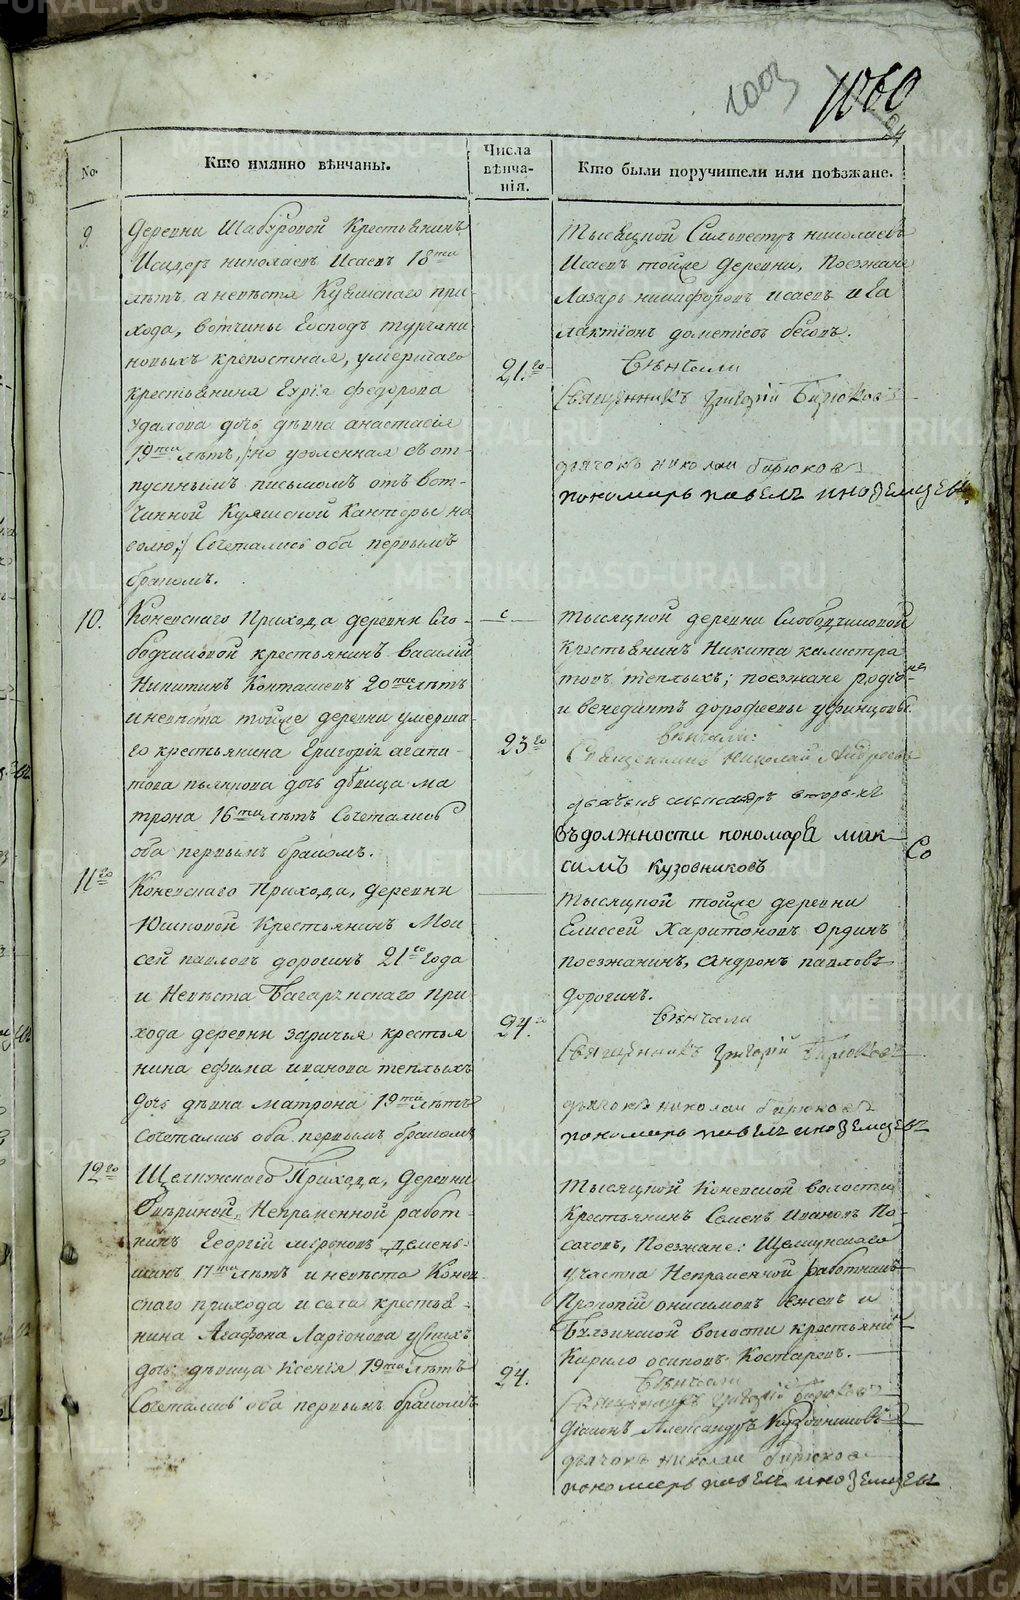 1003
1060
No.
Кто имянно вѣнчаны.
Числа вѣнча-нія.
Кто были поручители или поѣзжане.
9.
Деревни Шабуровой Крестьянинъ
Исидоръ николаевъ Исаевъ 18ти
лѣтъ, а невѣста Куяшского при-
хода, вотчины Господъ турчани
новыхъ крепостная, умершаго
крестьянина федорова
удалова дочь дѣвка анастасія
19ти лѣтъ, но уволенная съ от-
пускнымъ писмомъ отъ вот-
чинной Куяшской Канторы на
волю; Сочетались оба первымъ
бракомъ.
21.го
Тысяцкой Сильвестръ николаевъ
Исаевъ тойже деревни, Поезжане
Лазарь никифоровъ исаевъ и Га
лактіонъ дометіевъ бѣсовъ.
Вѣнчали
Священникъ григорій Бирюковъ
дьячокъ николаи бирюковъ
пономарь павелъ иноземцевъ
10.
Коневскаго Прихода деревни Сло-
бодчиковой крестьянинъ василій
Никитинъ 20ти лѣтъ
и невѣста тойже деревни умерша-
го крестьянина Григорія агапи-
това пьянкова дочь дѣвица ма
трона 16ти лѣтъ Сочетались
оба первымъ бракомъ.
23го
тысяцкой деревни Слободчиковой
Крестьянинъ Никита калистра
товъ теплыхъ; поезжане родіо-
нъ
и венедиктъ дорофеевы
вѣнчали:
Священникъ Николай Андреевъ
въ должности пономаря мак-
симъ кузовниковъ
Со
11го
Коневскаго Прихода, деревни
Юшковой Крестьянинъ Мои
сей павловъ дорогинъ 21го года
и Невѣста Багарякскаго При
хода деревни заричья крестья
нина ефима иванова теплыхъ
дочь дѣвка матрона 19ти лѣтъ
Сочетались оба первымъ бракомъ
24.го
тысяцкой тойже деревни
Елиссей Харитоновъ Ординъ
поезжанинъ, андронъ павловъ
дорогинъ.
Вѣнчали
Священникъ григорій Бирюковъ
дьячокъ николаи бирюковъ
пономарь павелъ иноземцевъ
12го
Щелкунскаго Прихода, деревни
Непременной работ-
никъ Георгій міроновъ демень-
шинъ 17ти лѣтъ и невѣста Конев
скаго прихода и села крестья-
нина Агафона Ларіонова
дочь дѣвица Ксенія 19ти лѣтъ
Сочетались оба первымъ бракомъ
24.
тысяцкой Коневской волости
Крестьянинъ Семенъ Ивановъ По-
Поезжане: Щелкунскаго
участка Непременной работникъ
Прокопій онисимовъ ежевъ и
волости крестьяни
Кирило осиповъ Костаревъ.
Вѣнчали
Священникъ григорій бирюковъ
Діаконъ Александръ Кузовниковъ
дьячокъ николаи бирюковъ
пономарь павелъ иноземцевъ
METRIKI.GASO-URAL.RU